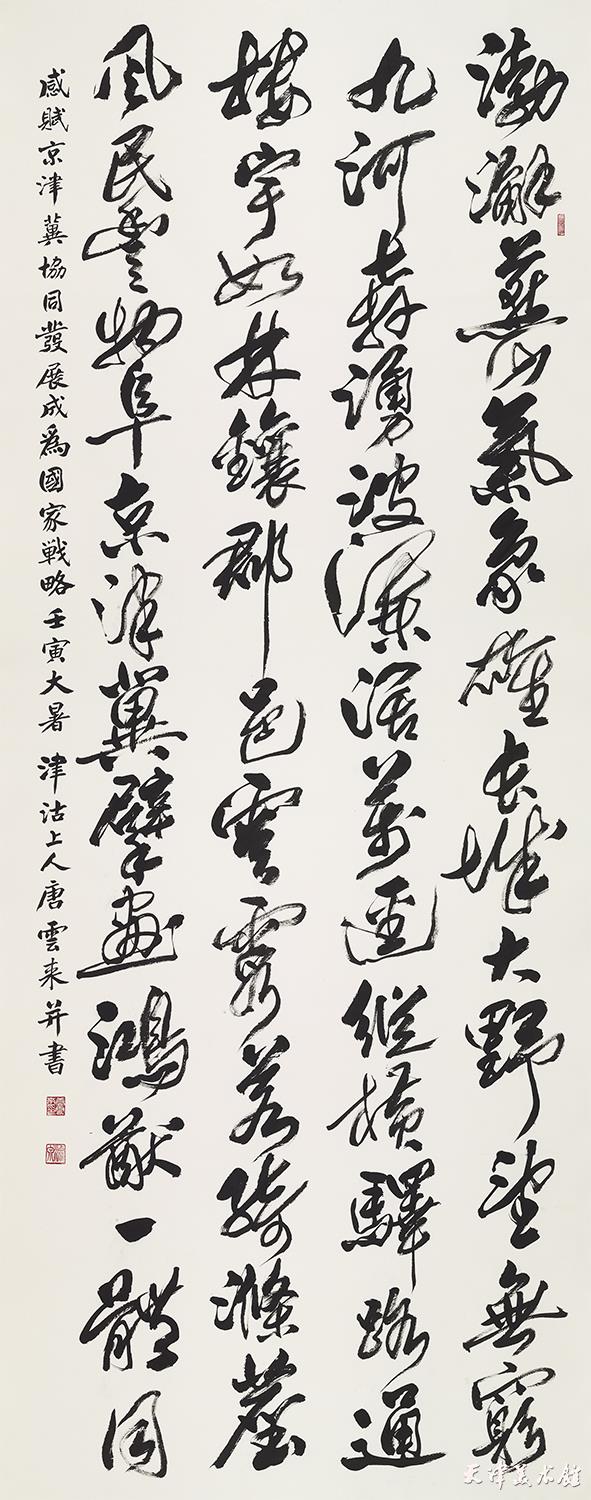 渤澥燕山氣象雄長城大野望無窮
九河奔湧波瀾闊萬逕縱橫驛路通
樓宇如林鑲郡邑雲霞若綺滌塵
風民豐物阜京津冀擘畫鴻猷一體同
感賦京津冀協同發展成爲國家戦略壬寅大暑 津沽上人唐雲來并書
天津美术馆